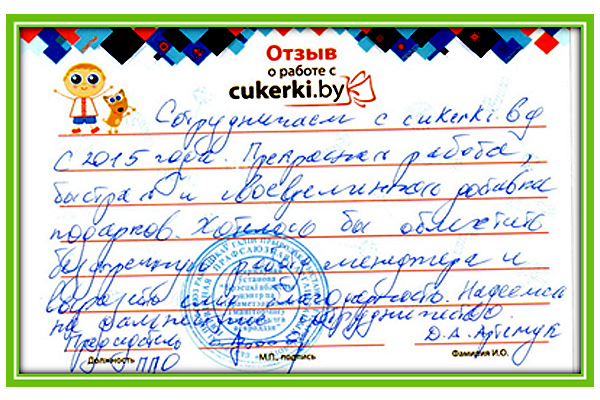 Отзыв
о работе с
cukerki.by
Сотрудничаем с cukerki.by
с 2015 года. Прекрасная работа,
быстрая и своевременная доставка
подарков. Хотелось бы отметить
безупречную работу менеджера и
выразить благодарность. Надеемся
на дальнейшее сотрудничество.
Председатель Д.А.
ППО
Должность М.П., подпись Фамилия И.О.